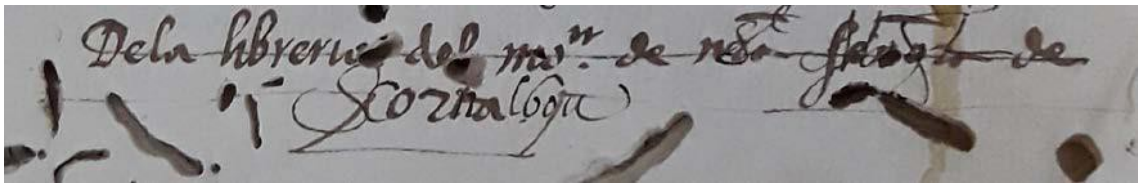 De la libreria del mo.n de nra señora de
Scornalbou